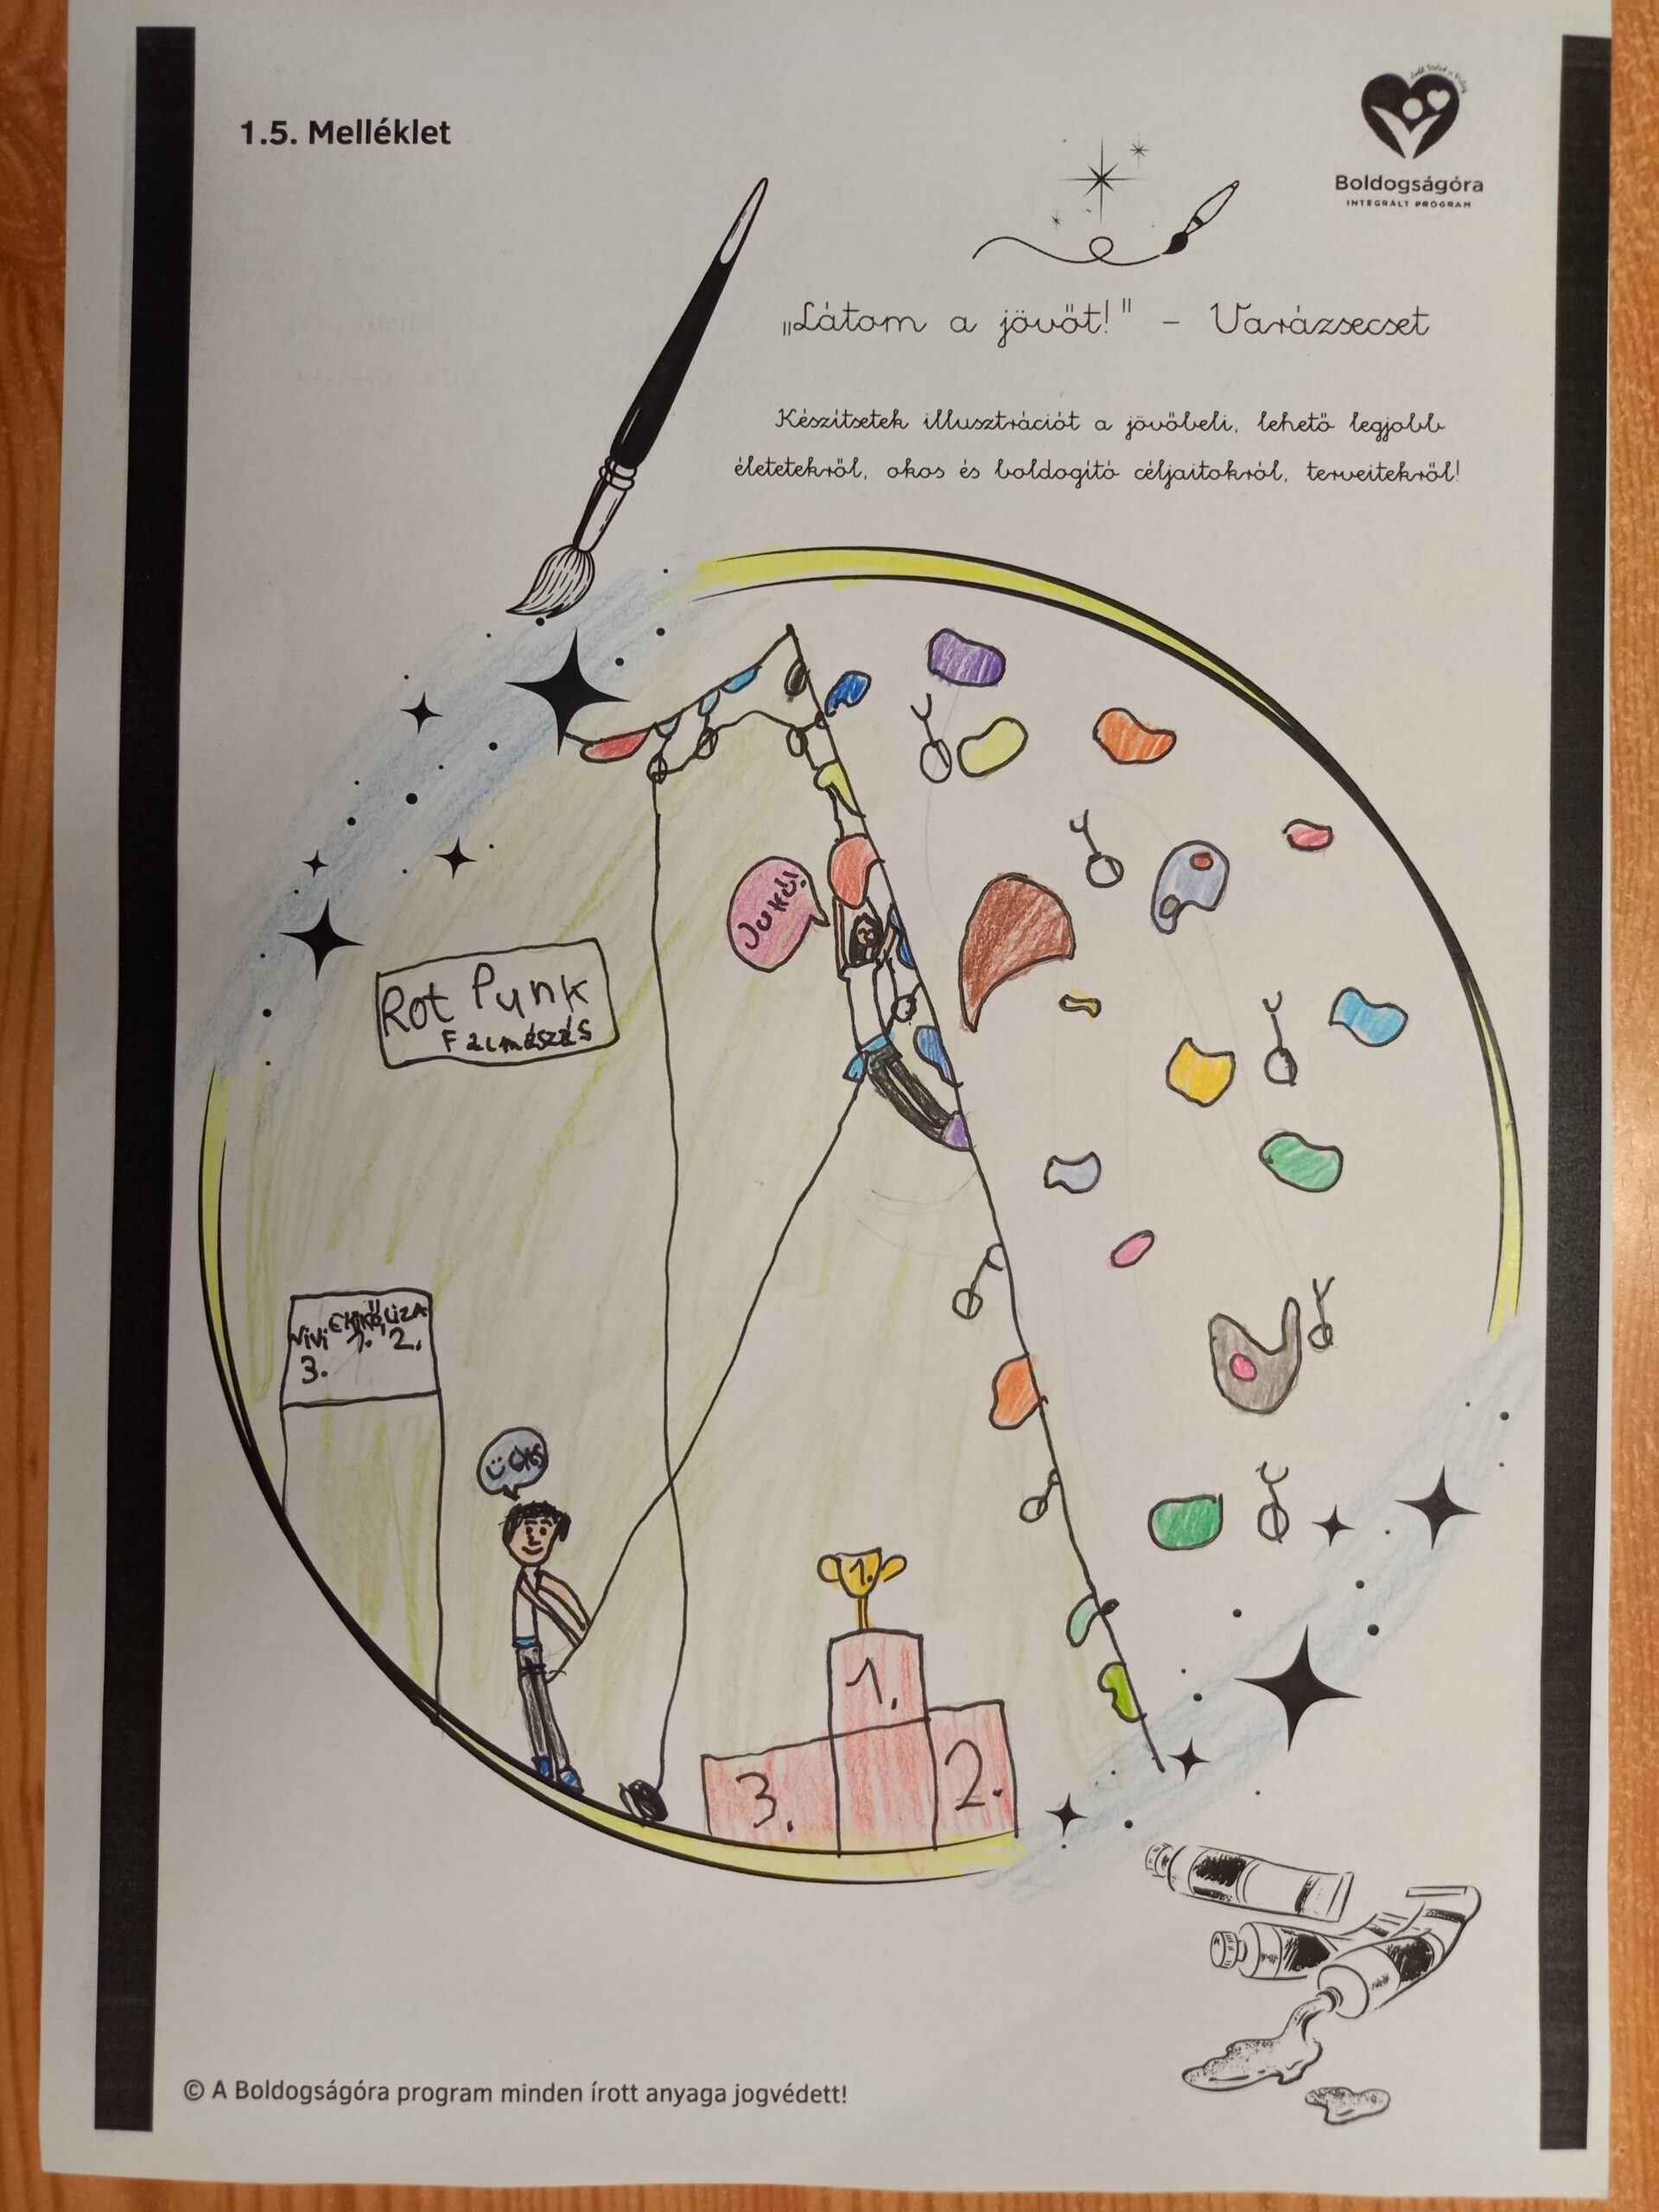 1.5. Melléklet
Boldogságóra
INTEGRÁLT PROGRAM
„Látom a jövőt!" – Varázsecset
Készítsetek illusztrációt a jövőbeli, lehető legjobb
életetekről, okos és boldogító céljaitokról, terveitekről!
Jukú!
Rot Punk
Falmászás
Vivi LizA
3. 1. 2.
1.
1.
3. 2.
© A Boldogságóra program minden írott anyaga jogvédett!